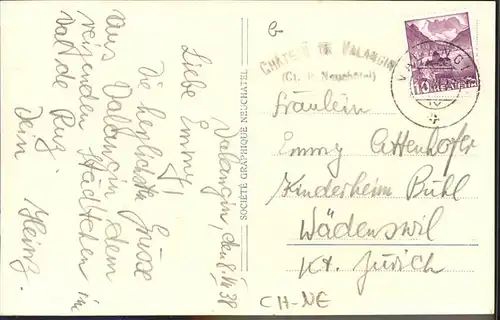 Valangin, den 8. VII 38
Liebe Emmy!
Die herzlichsten Grüsse
aus Valangin dem
reizenden Städtchen im
Val de Ruz.
Dein Heinz.
SOCIÉTÉ GRAPHIQUE NEUCHATEL
CHÂTEAU DE VALANGIN
(Ct. d. Neuchâtel)
VALANGIN
10
HELVETIA
Fräulein
Emmy Attenhofer
Kinderheim Bühl
Wädenswil
Kt. Zürich
CH-NE